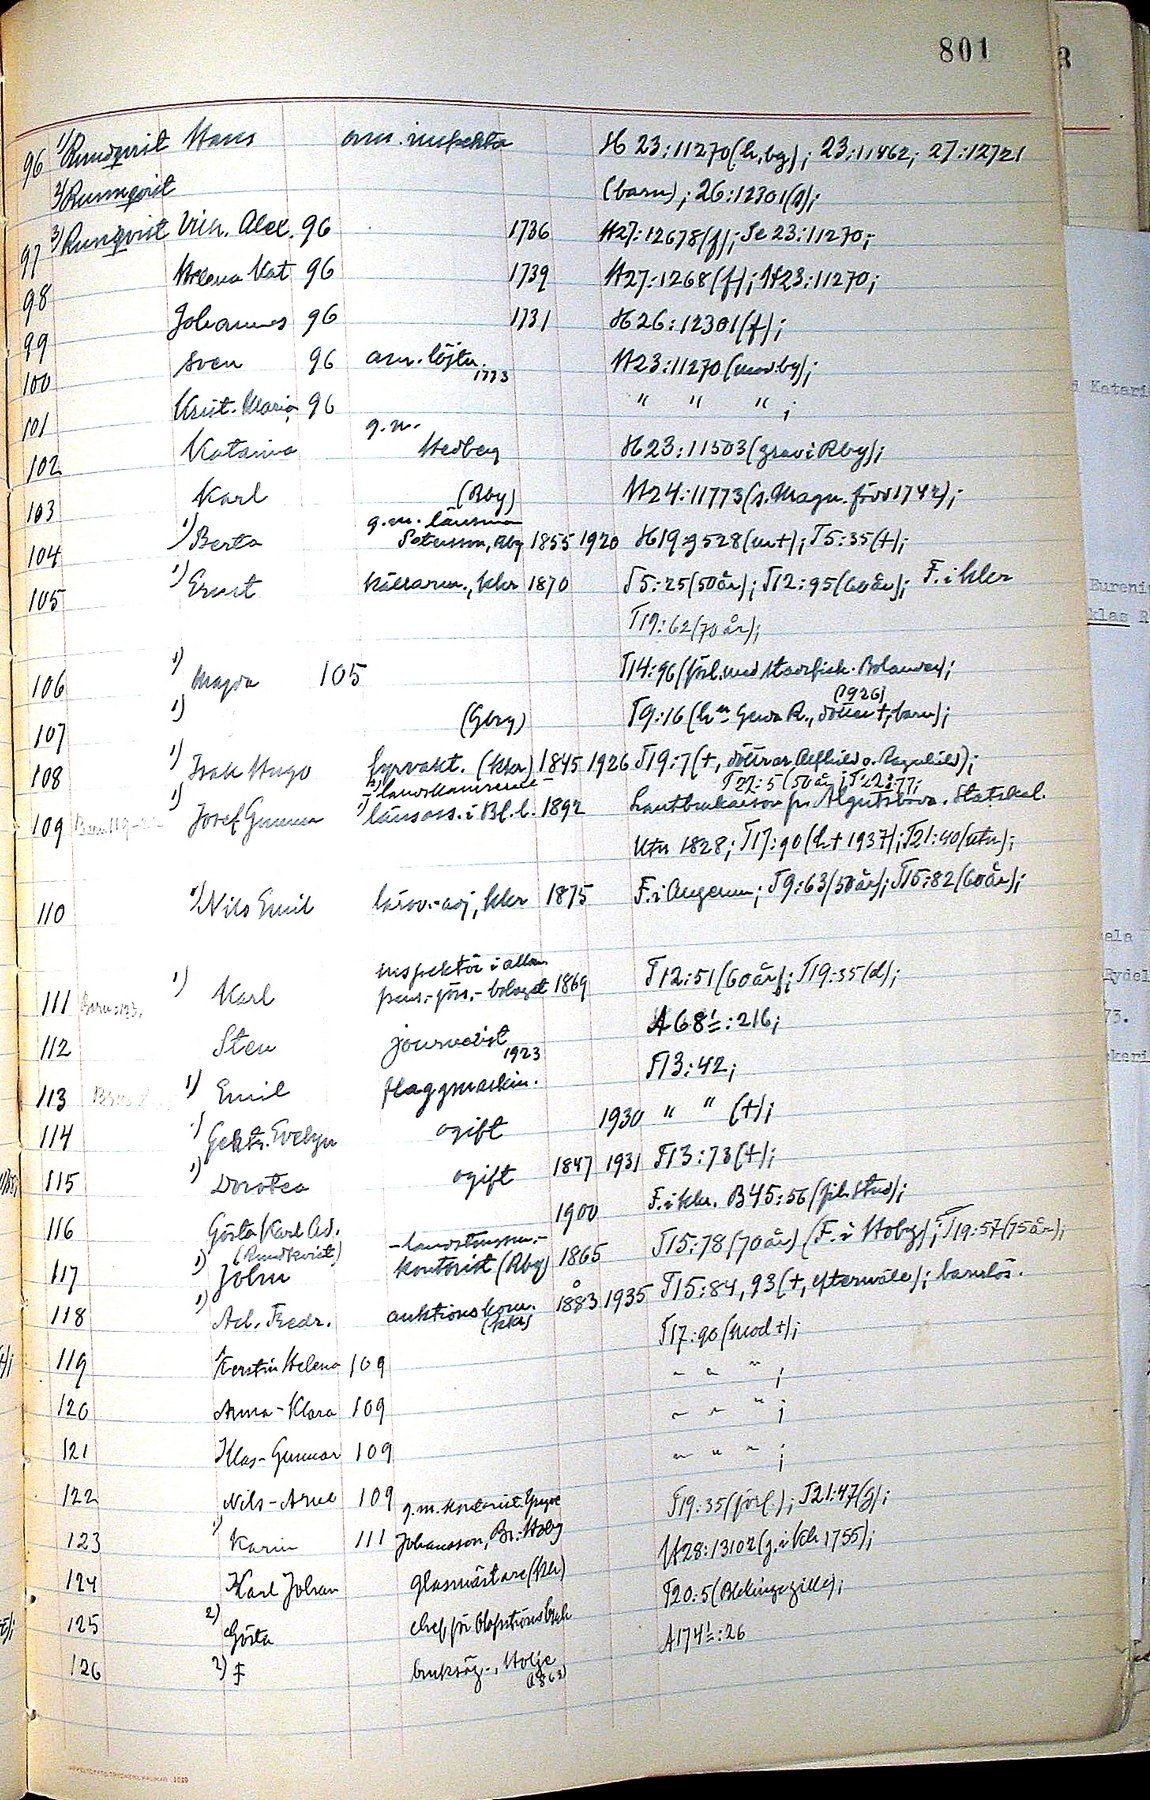 801
96 1) Rundqvist Hans am. inspektor H 23:11270 (h, bg); 23:11462; 27:12721
2) Runnqvist (barn); 26:12301 (s);
97 3) Runqvist Vilh. Alex. 96 1736 H27:12678 (f); Se 23:11270;
98 Helena Kat 96 1739 H27:1268 (f); H23:11270;
99 Johannes 96 1731 H26:12301 (f);
100 Sven 96 am. löjtn. 1773 H23:11270 (mod. by);
101 Krist. Maria 96 " " " ;
102 Katarina g.m. Hedberg H23:11503 (grav i Rby);
103 Karl (Rby) H24:11773 (s. Magn. född 1742);
104 1) Berta g.m. länsman Petersson, Rby 1855 1920 H19:9528 (m+); T5:35 (+);
105 1) Ernst källarm., Khr 1870 T5:25 (50 år); T12:95 (60 år); F. i Khr
T19:62 (70 år);
106 1) Magda 105 T14:96 (förl. med Bolander);
107 1) (Gbg) T9:16 (h Gerda R., dotter +, barn); (1926)
108 1) Isak Hugo fyrvakt. (Kkr) 1845 1926 T19:7 (+, döttrar Alfhild o. Ragnhild);
109 Barn 119-22 1) Josef Gunnar 2) landskamrerare 1) länsass. i Bl. l. 1892 Lantbrukareson fr. Algutsboda. Statskal.
T22:5 (50 år); T22:77;
Utn 1828; T17:90 (h + 1937); T21:40 (utn);
110 1) Nils Emil lärov.-adj, Khr 1875 F. i Augerum; T9:63 (50 år); T15:82 (60 år);
111 Barn: 123. 1) Karl inspektör i allm. pens.-förs.-bolaget 1869 T12:51 (60 år); T19:35 (d);
112 Sten journalist 1923 A 68 1/2:216;
113 1) Emil flaggmaskin. T13:42;
114 1) Gertr. Evelyn ogift 1930 " " (+);
115 1) Dorotea ogift 1847 1931 T13:73 (+);
116 Gösta Karl Ad. (Rundkvist) 1900 F. i Khr. B45:56 (fil. stud);
117 1) John - landstingsm.- kontorist (Rby) 1865 T15:78 (70 år) (F. i Hoby); T19:57 (75 år);
118 1) Ad. Fredr. auktionskom. (Kkr) 1883 1935 T15:84, 93 (+, eftermäle); barnlös.
119 Kerstin Helena 109 T17:90 (mod +);
120 Anna-Klara 109 " " " ;
121 Klas-Gunnar 109 " " " ;
122 Nils-Arne 109 " " " ;
123 1) Karin 111 g.m. kontorist Yngve Johansson, Br.-Hoby T19:35 (förl.); T21:47 (g);
124 Karl Johan glasmästare (Kh) H28:13102 (g. i Kh 1755);
125 2) Gösta chef för Olofströms T20:5 (Blekingegille);
126 2) F bruksäg., Holje (1863) A174 1/2:26
1929